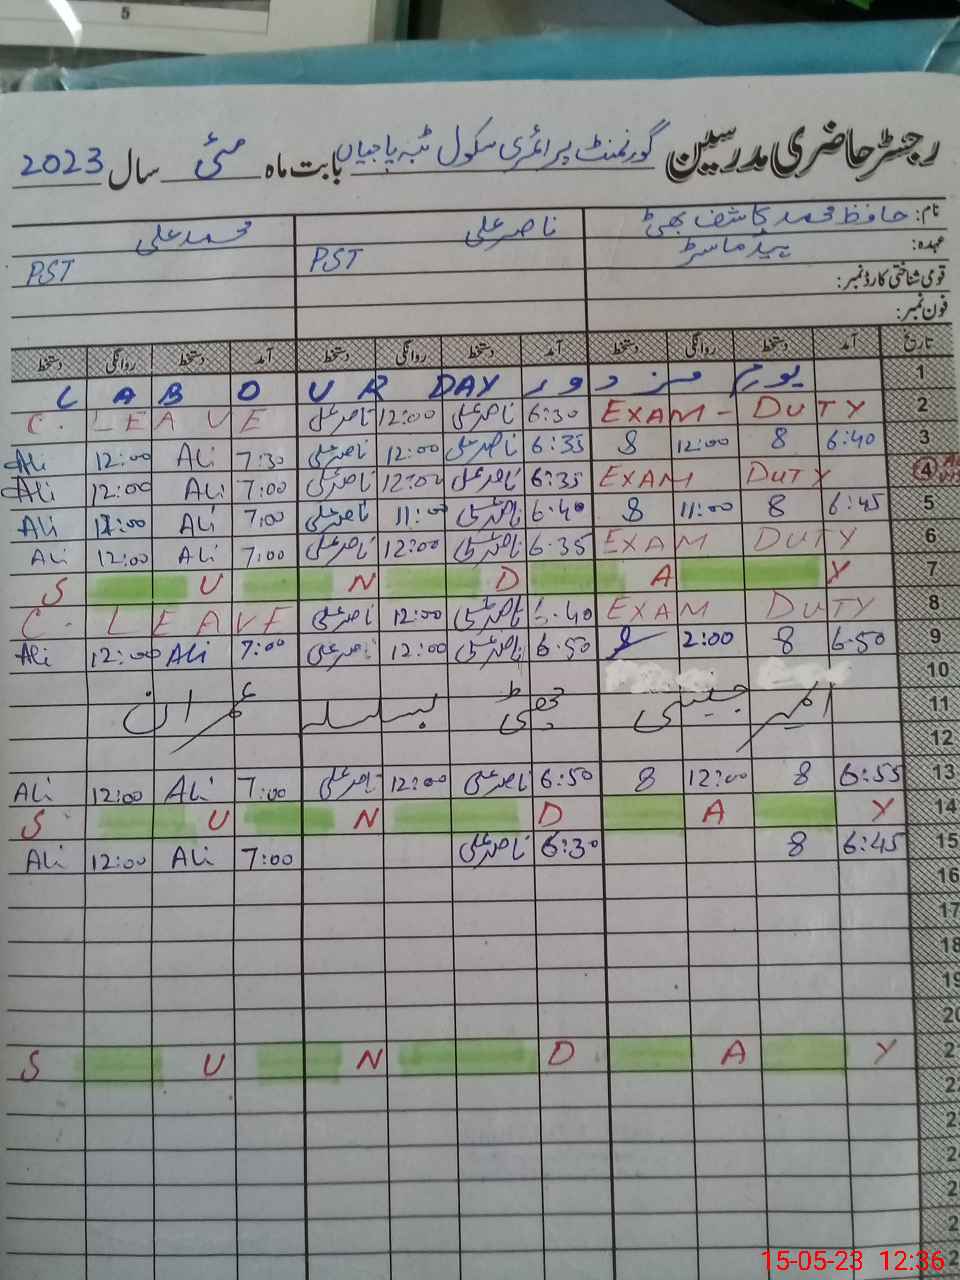 5
رجسٹر حاضری مدرسین گورنمنٹ پرائمری سکول ٹبہ پاجیاں بابت ماہ مئی سال 2023
نام: حافظ محمد کاشف بھٹی ناصر علی محمد علی
عہدہ: ہیڈ ماسٹر PST PST
قومی شناختی کارڈ نمبر:
فون نمبر:
تاریخ آمد دستخط روانگی دستخط آمد دستخط روانگی دستخط آمد دستخط روانگی دستخط
1 یوم مزدور LABOUR DAY
2 EXAM - DUTY 6:30 ناصر علی 12:00 ناصر علی C. LEAVE
3 6:40 8 12:00 8 6:35 ناصر علی 12:00 ناصر علی 7:30 Ali 12:00 Ali
4 EXAM DUTY 6:35 ناصر علی 12:00 ناصر علی 7:00 Ali 12:00 Ali
5 6:45 8 11:00 8 6.40 ناصر علی 11:00 ناصر علی 7:00 Ali 11:00 Ali
6 EXAM DUTY 6.35 ناصر علی 12:00 ناصر علی 7:00 Ali 12:00 Ali
7 SUNDAY
8 EXAM DUTY .40 ناصر علی 12:00 ناصر علی C. LEAVE
9 6.50 8 2:00 8 6.50 ناصر علی 12:00 ناصر علی 7:00 Ali 12:00 Ali
10
11 بسلسلہ عمران
12
13 6:55 8 12:00 8 6:50 ناصر علی 12:00 ناصر علی 7:00 Ali 12:00 Ali
14 SUNDAY
15 6:45 8 6:30 ناصر علی 7:00 Ali 12:00 Ali
16
17
18
19
20
21 SUNDAY
15-05-23 12:36